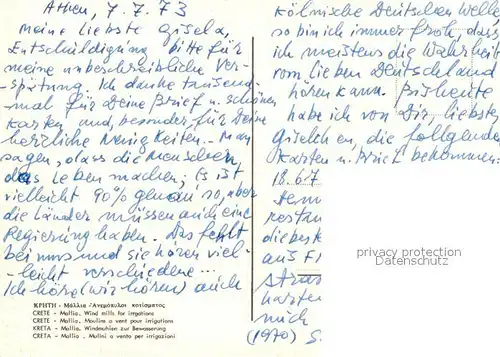 Athen, 7.7.73
Meine liebste Gisela,
Entschüldigung bitte für
meine unbeschreibliche Ver-
spätung. Ich danke tausend-
mal für Deine Brief u. schönen
Karten und, besonder für Deine
herzliche Neuigkeiten. Man
sagen, dass die Menschen
das Leben machen; Es ist
vielleicht 90% genau so, aber
die Länder müssen auch eine
Regierung haben. Das fehlt
bei uns und sie hören viel-
leicht verschiedene...
Ich höre (wir hören) auch
ΚΡΗΤΗ - Μάλλια - Ἀνεμόμυλοι ποτίσματος
CRETE - Mallia, Wind mills for irrigations
CRETE - Mallia, Moulins a vent pour irrigations
KRETA - Mallia, Windmühlen zur Bewasserung
CRETA - Mallia, Mulini a vento per irrigazioni
Kölnische Deutschen Welle
so bin ich immer froh, dass
ich meistens die Wahrheit
vom lieben Deutschland
hören kann. Bis heute
habe ich von Dir, liebstes
Giselchen, die follgenden
Karten u. Brief bekommen:
18.6.7
die bes
aus F
Stras
Karten
mich
(1970) S.
privacy protection
Datenschutz